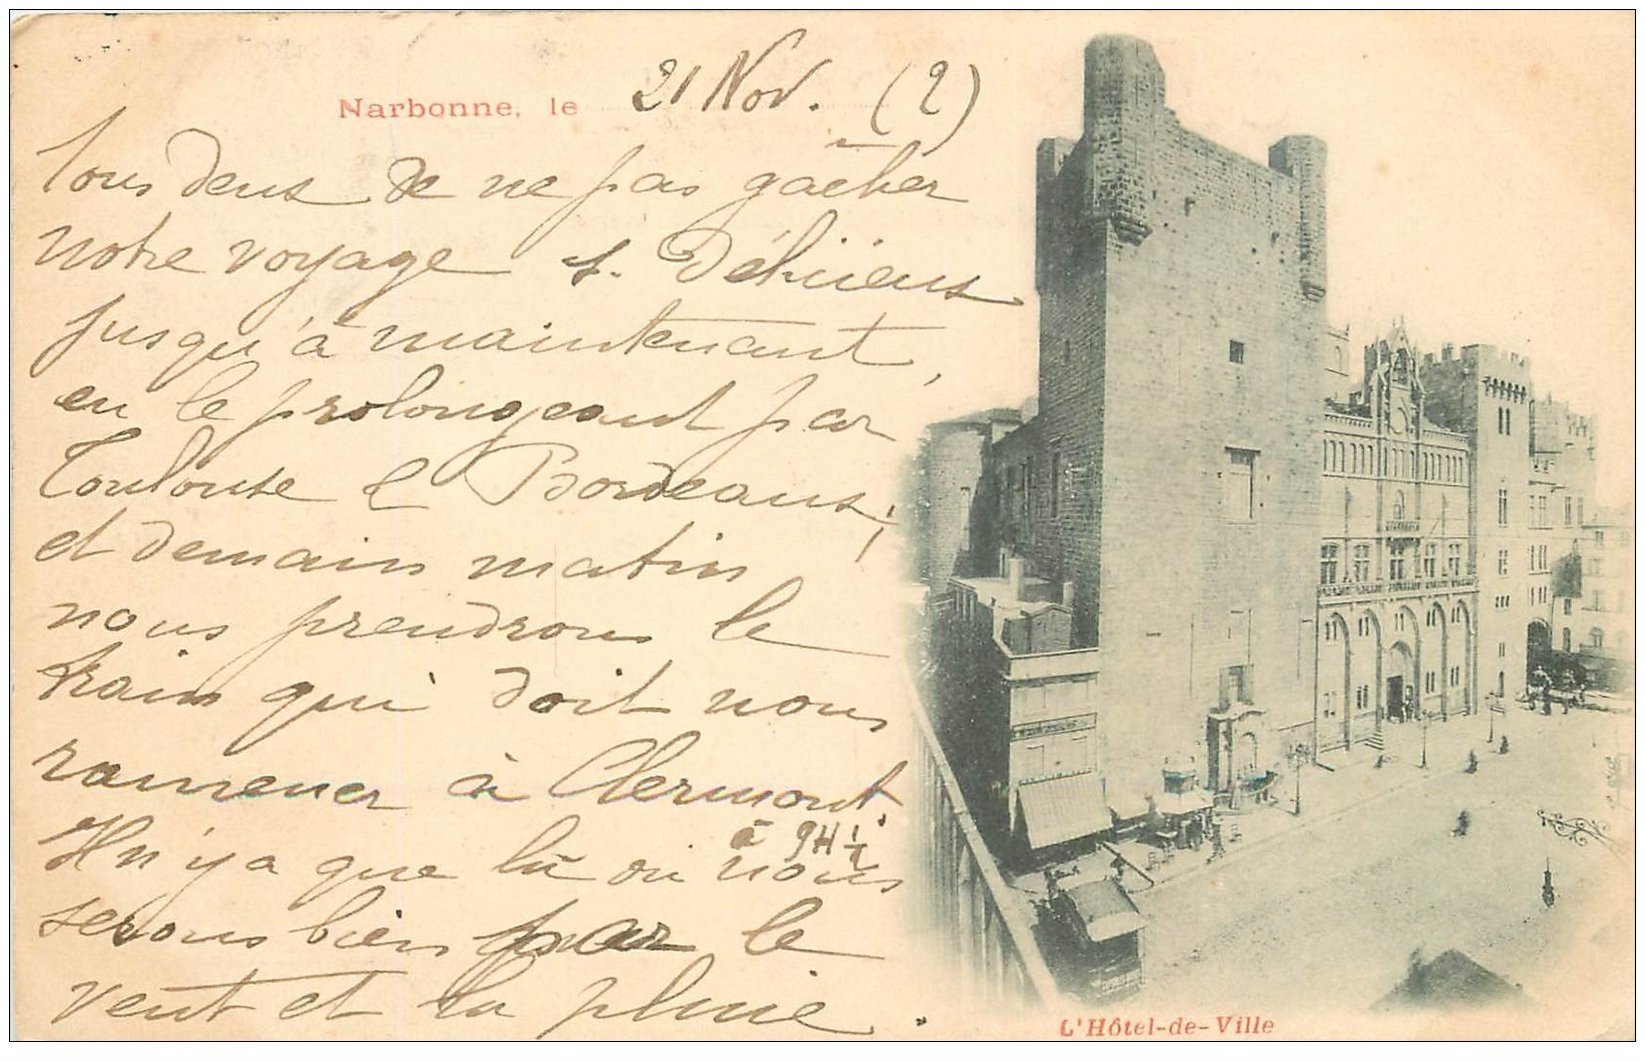 Narbonne, le 21 Nov. (2)
tous deux de ne pas gâcher
notre voyage s. délicieux
jusqu'à maintenant,
en le prolongeant par
Toulouse & Bordeaux;
et demain matin
nous prendrons le
train qui doit nous
ramener à Clermont
à 9H ½
Il n'y a que là où nous
serons bien par le
vent et la pluie.
L'Hôtel-de-Ville